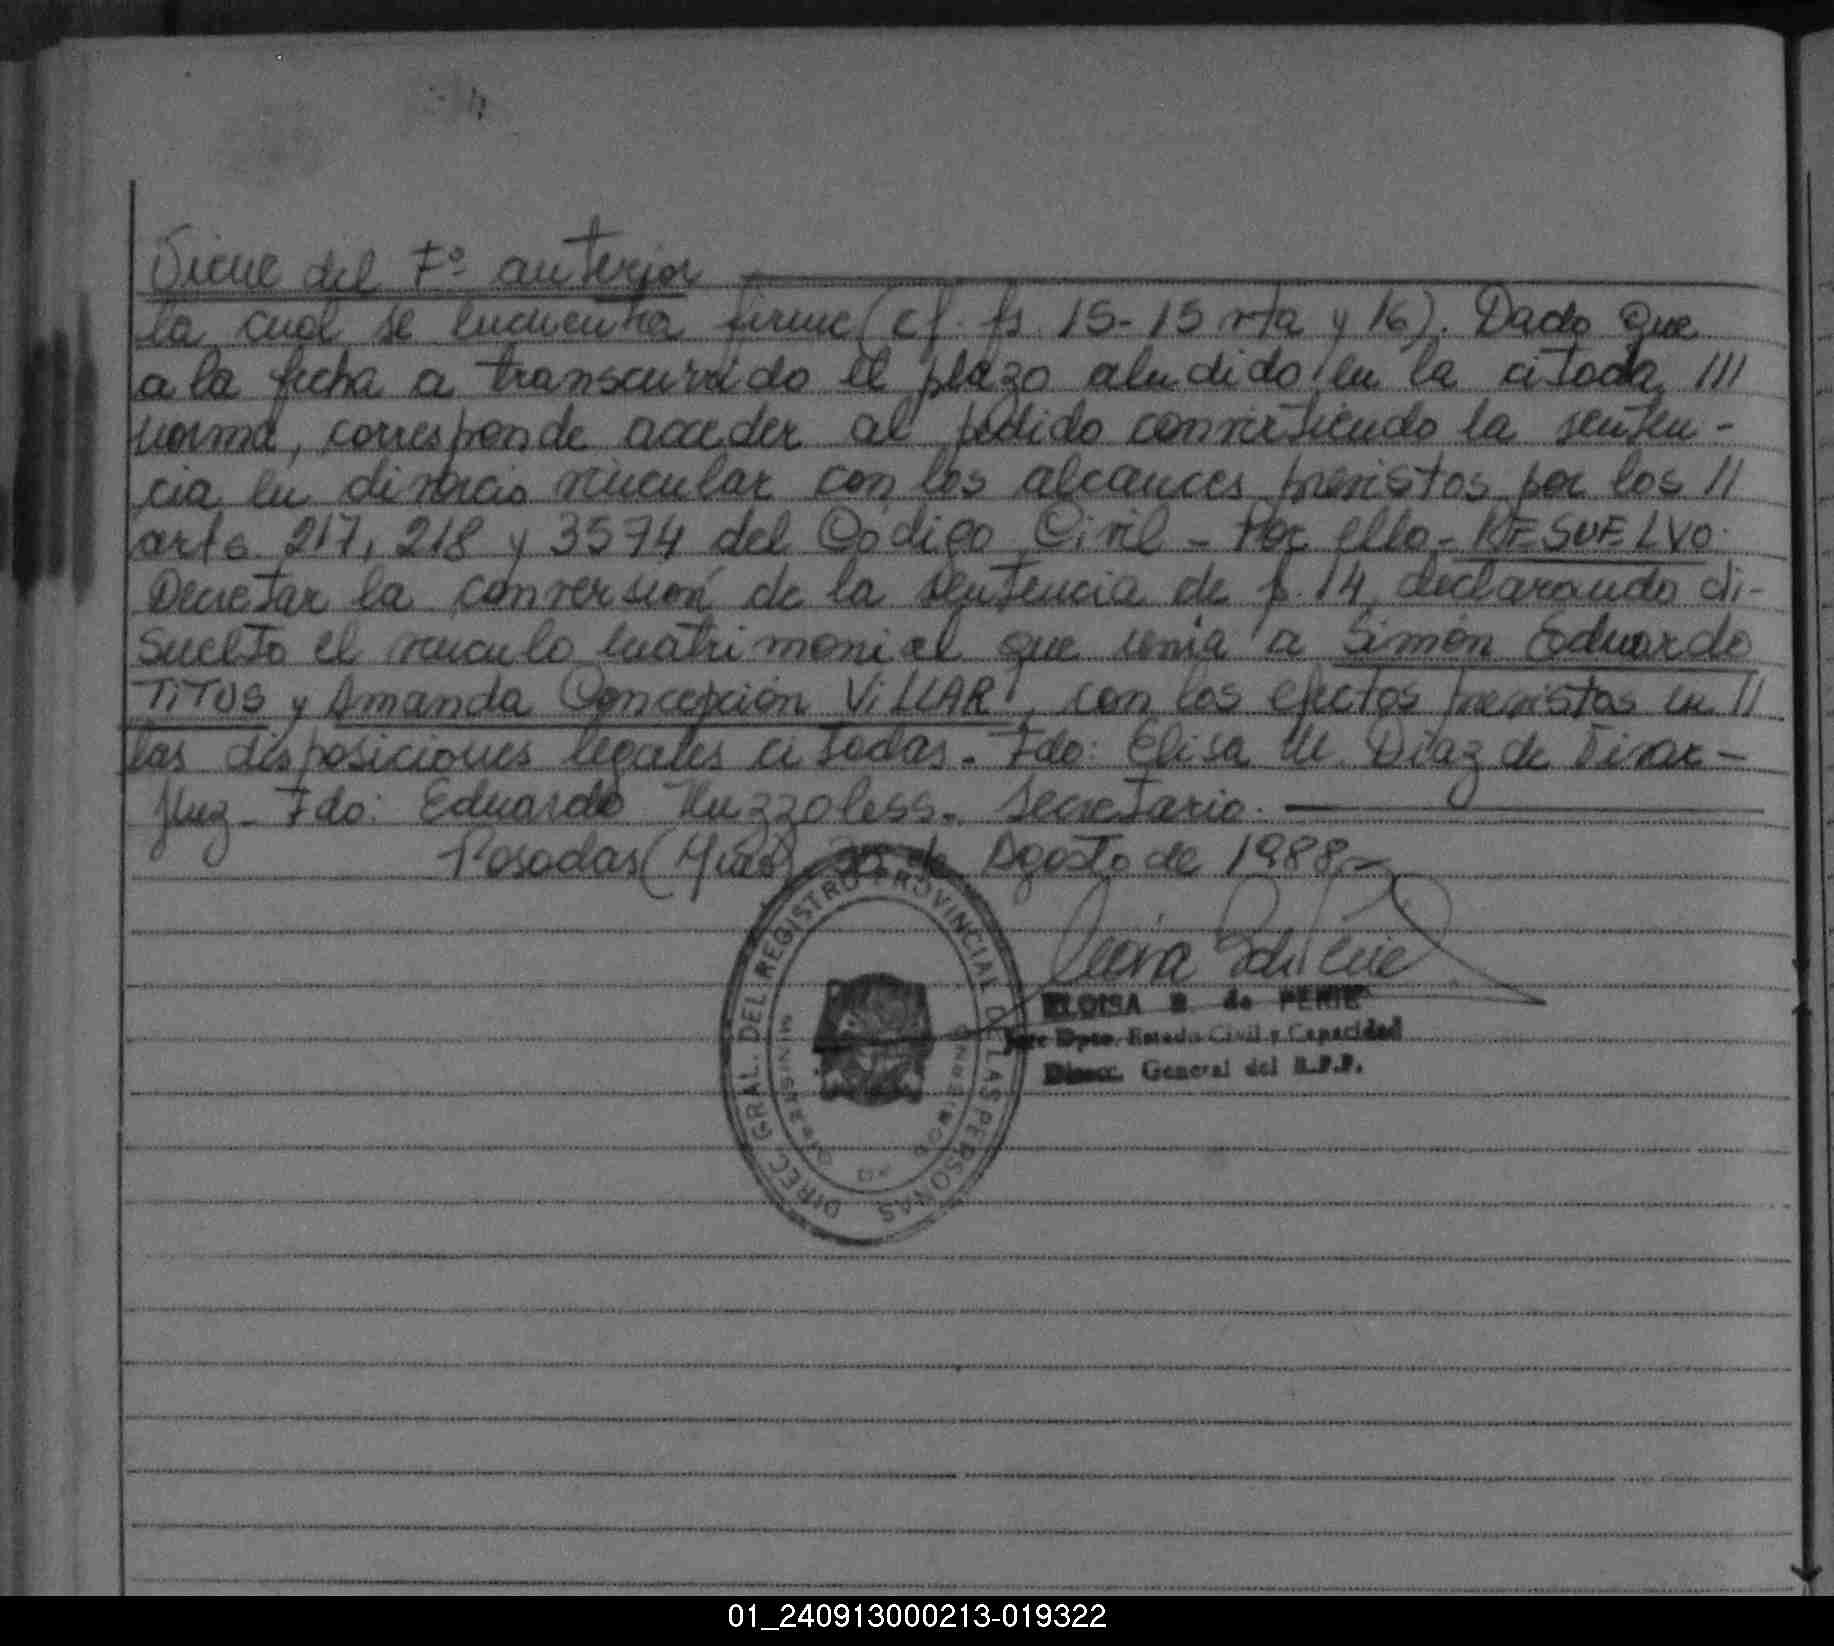 Viene del Fº anterior
la cual se encuentra firme (cf. fs. 15-15 vta y 16). Dado que
a la fecha a transcurrido el plazo aludido en la citada ///
norma, corresponde acceder al pedido convirtiendo la senten-
cia en divorcio vincular con los alcances previstos por los //
arts. 217, 218 y 3574 del Código Civil - Por ello - RESUELVO:
Decretar la conversión de la sentencia de f. 14, declarando di-
suelto el vinculo matrimonial que unia a Simón Eduardo
TITUS y Amanda Concepción VILLAR, con los efectos previstos en //
las disposiciones legales citadas. Fdo: Elisa M. Diaz de Vivar -
Juez - Fdo: Eduardo Secretario.
Posadas (Mnes) de Agosto de 1988.-
ELOISA B. de PERIE
Jefe Dpto. Estado Civil y Capacidad
Direcc. General del R.P.P.
DIREC. GRAL. DEL REGISTRO PROVINCIAL DE LAS PERSONAS
01_240913000213-019322